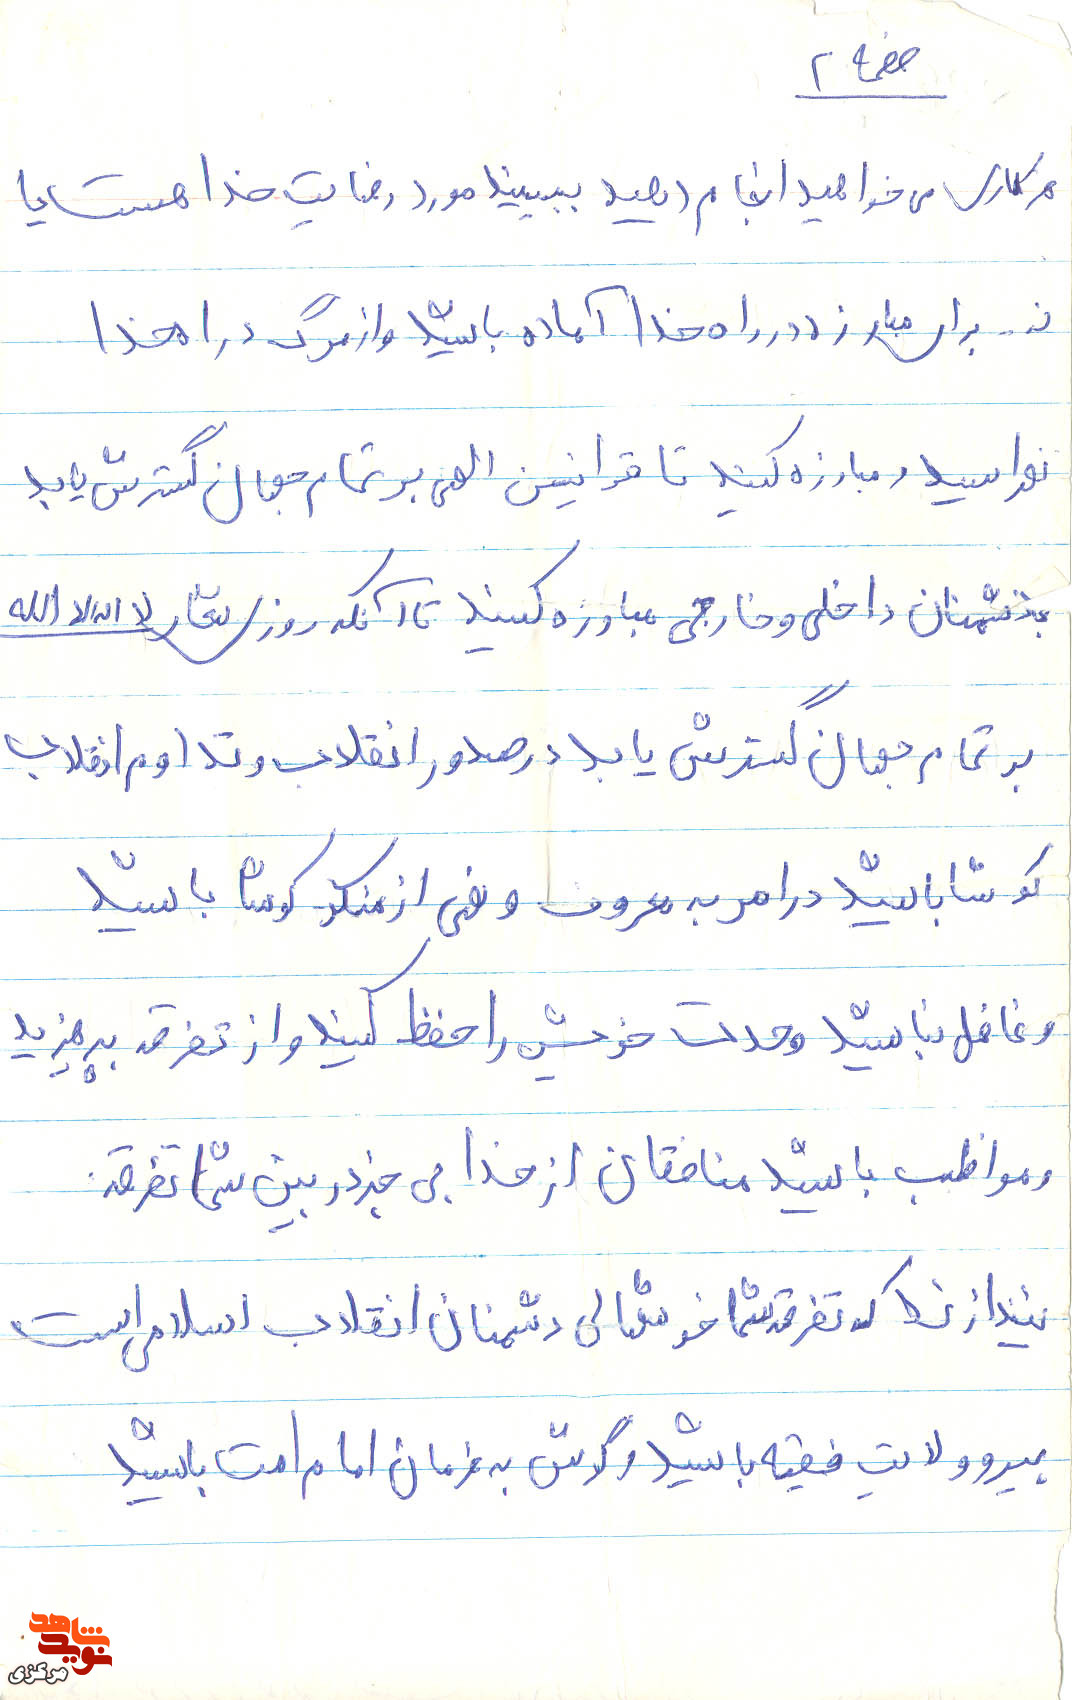 صفحه ۲
هر کاری می خواهید انجام دهید ببینید مورد رضایت خدا هست یا
نه - برای مبارزه در راه خدا آماده باشید و از مرگ در راه خدا
نهراسید و مبارزه کنید تا قوانین الهی بر تمام جهان گسترش یابد
با دشمنان داخلی و خارجی مبارزه کنید تا آنکه روزی شعار لا اله الا الله
بر تمام جهان گسترش یابد در صدور انقلاب و تداوم انقلاب
کوشا باشید در امر به معروف و نهی از منکر کوشا باشید
و غافل نباشید وحدت خویش را حفظ کنید و از تفرقه بپرهیزید
و مواظب باشید منافقان از خدا بی خبر در بین شما تفرقه
نیندازند که تفرقه شما خوشحالی دشمنان انقلاب اسلامی است
پیرو ولایت فقیه باشید و گوش به فرمان امام امت باشید
نوید شاهد
مرکزی